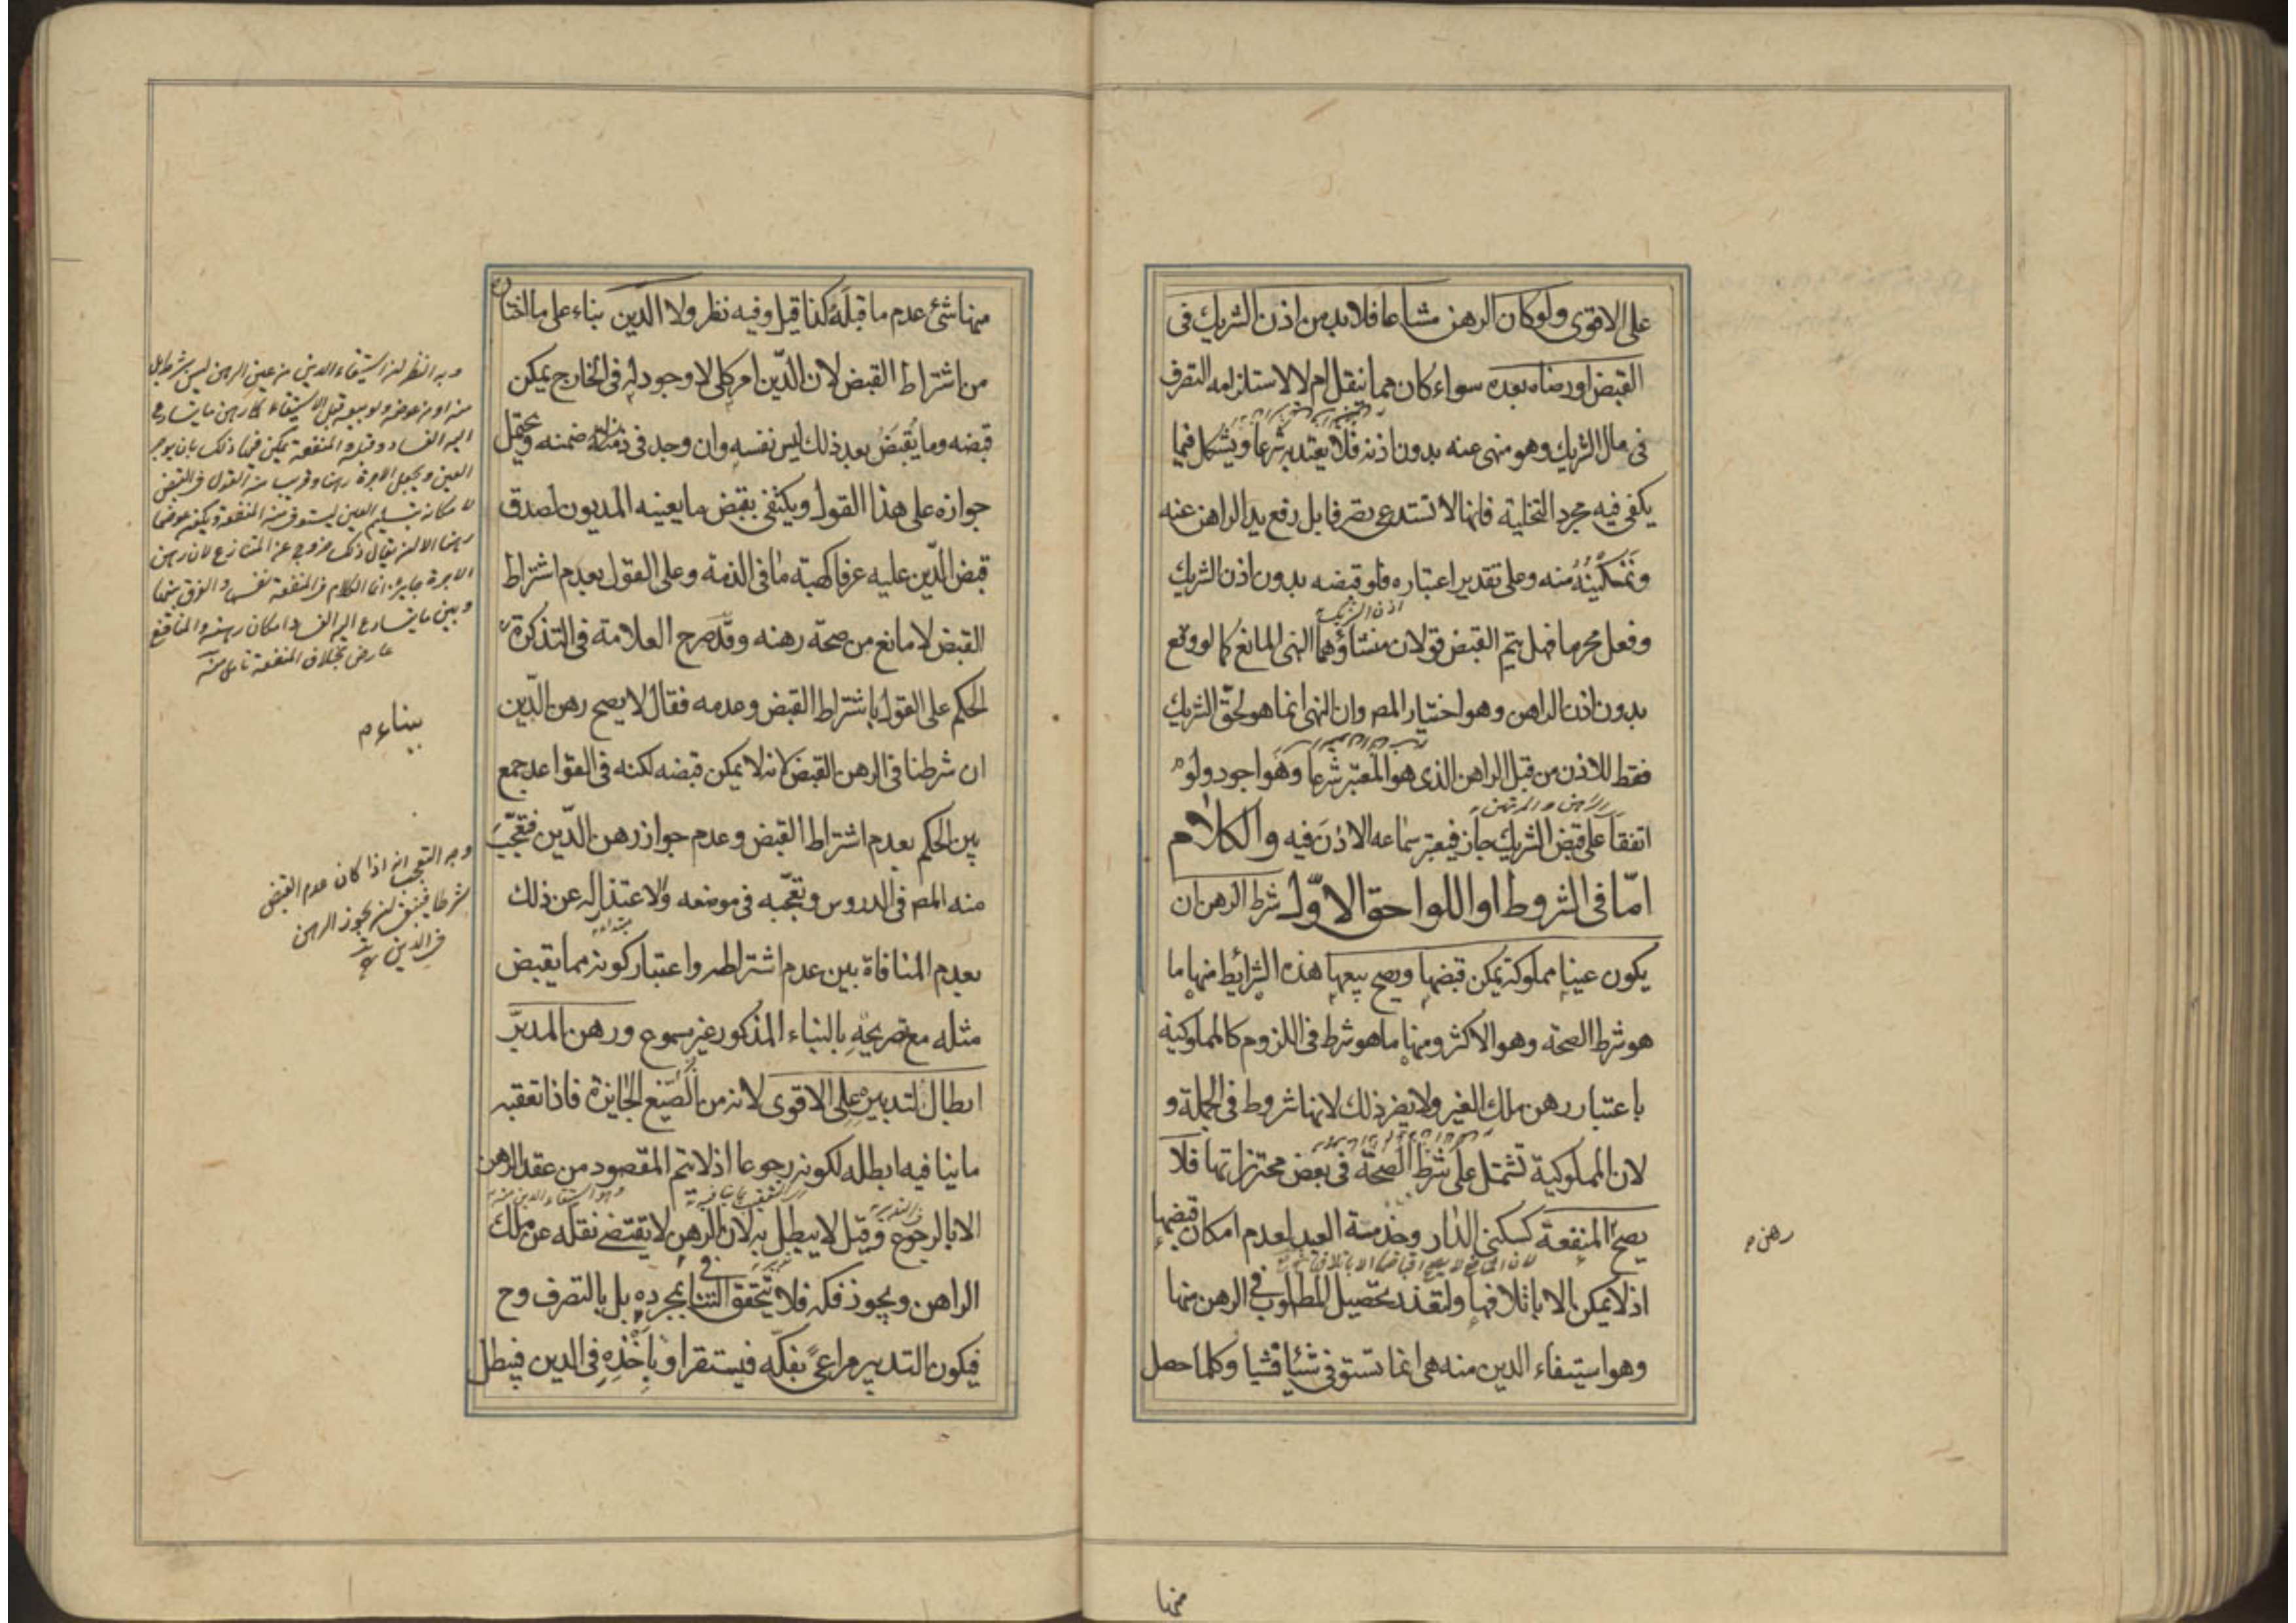 على الاقوى ولو كان الرهن مشاعا فلا بد من اذن الشريك فى
القبض او رضاه بعده سواء كان مما ينقل ام لا لاستلزامه التصرف
فى مال الشريك وهو منهى عنه بدون اذنه فلا يعتد به شرعا ويشكل فيما
يكفى فيه مجرد التخلية فانها لا تستدعى تصرفا بل رفع يد الراهن عنه
وتمكينه منه وعلى تقدير اعتباره فلو قبضه بدون اذن الشريك
اذن الشريك
وفعل محرما فهل يتم القبض قولان منشاؤهما النهى المانع كما لو وقع
بدون اذن الراهن وهو اختيار المص وان النهى انما هو لحق الشريك
فقط للاذن من قبل الراهن الذى هو المعتبر شرعا وهو اجود ولو
الراهن والمرتهن
اتفقا على قبض الشريك جاز فيعتبر سماعه الاذن فيه والكلام
امّا فى الشروط او اللواحق الاوّل شرط الرهن ان
يكون عينا مملوكة يمكن قبضها ويصح بيعها هذه الشرائط منها ما
هو شرط الصحة وهو الاكثر ومنها ما هو شرط فى اللزوم كالمملوكية
باعتبار رهن ملك الغير ولا يضر ذلك لانها شروط فى الجملة و
لان المملوكية تشتمل على شرط الصحة فى بعض محترزاتها فلا
يصح المنفعة كسكنى الدار وخدمة العبد لعدم امكان قبضها
رهن
اذ لا يمكن الا باتلافها ولتعذر تحصيل المطلوب فى الرهن منها
وهو استيفاء الدين منه هى انما تستوفى شيئا فشيا وكلما حصل
منها
منها شئ عدم ما قبله كذا قيل وفيه نظر ولا الدّين بناء على ما اختاره
من اشتراط القبض لان الدّين امر كلى لا وجود له فى الخارج يمكن
قبضه وما يقبض بعد ذلك ليس نفسه وان وجد فى ضمنه ويحتمل
جوازه على هذا القول ويكتفى بقبض ما يعينه المديون لصدق
قبض الدّين عليه عرفا كهبة ما فى الذمة وعلى القول بعدم اشتراط
القبض لا مانع من صحة رهنه وقد صرح العلامة فى التذكرة
بناء
الحكم على القول باشتراط القبض وعدمه فقال لا يصح رهن الدّين
ان شرطنا فى الرهن القبض لانه لا يمكن قبضه لكنه فى القواعد جمع
بين الحكم بعدم اشتراط القبض وعدم جواز رهن الدّين فتعجّب
منه المص فى الدروس وتعجّبه فى موضعه والاعتذار له عن ذلك
بعدم المنافاة بين عدم اشتراطه واعتبار كونه مما يقبض
مثله مع تصريحه بالبناء المذكور غير مسموع ورهن المدبّر
ابطال لتدبيره على الاقوى لانه من الصيغ الجايزة فاذا تعقبه
ما ينافيه ابطله لكونه رجوعا اذ لا يتم المقصود من عقد الرهن
الا بالرجوع وقيل لا يبطل به لان الرهن لا يقتضى نقله عن ملك
الراهن ويجوز فكه فلا يتحقق التنافى بمجرده بل بالتصرف وح
فيكون التدبير مراعى بفكّه فيستقر او ياخذه فى الدين فيبطل
وجه النظر ان استيفاء الدين من عين الرهن ليس بشرط بل
منه او من عوضه ولو ببيعه قبل الاستيفاء كما رهن ما يتسارع
اليه الفساد قبله والمنفعة يمكن فيها ذلك بان يوجر
العين ويجعل الاجرة رهنا وقريب منه القول فى القبض
لامكانه بتسليم العين ليستوفى منه المنفعة ويكون عوضها
رهنا الا ان يقال ذلك خروج عن المتنازع لان رهن
الاجرة جايز انما الكلام فى المنفعة نفسها والفرق بينها
وبين ما يتسارع اليه الفساد امكان رهنه والمانع
عارض بخلاف المنفعة تامل منه
وجه التعجب انه اذا كان عدم القبض
شرطا فينبغى ان يجوز الرهن
فى الدين